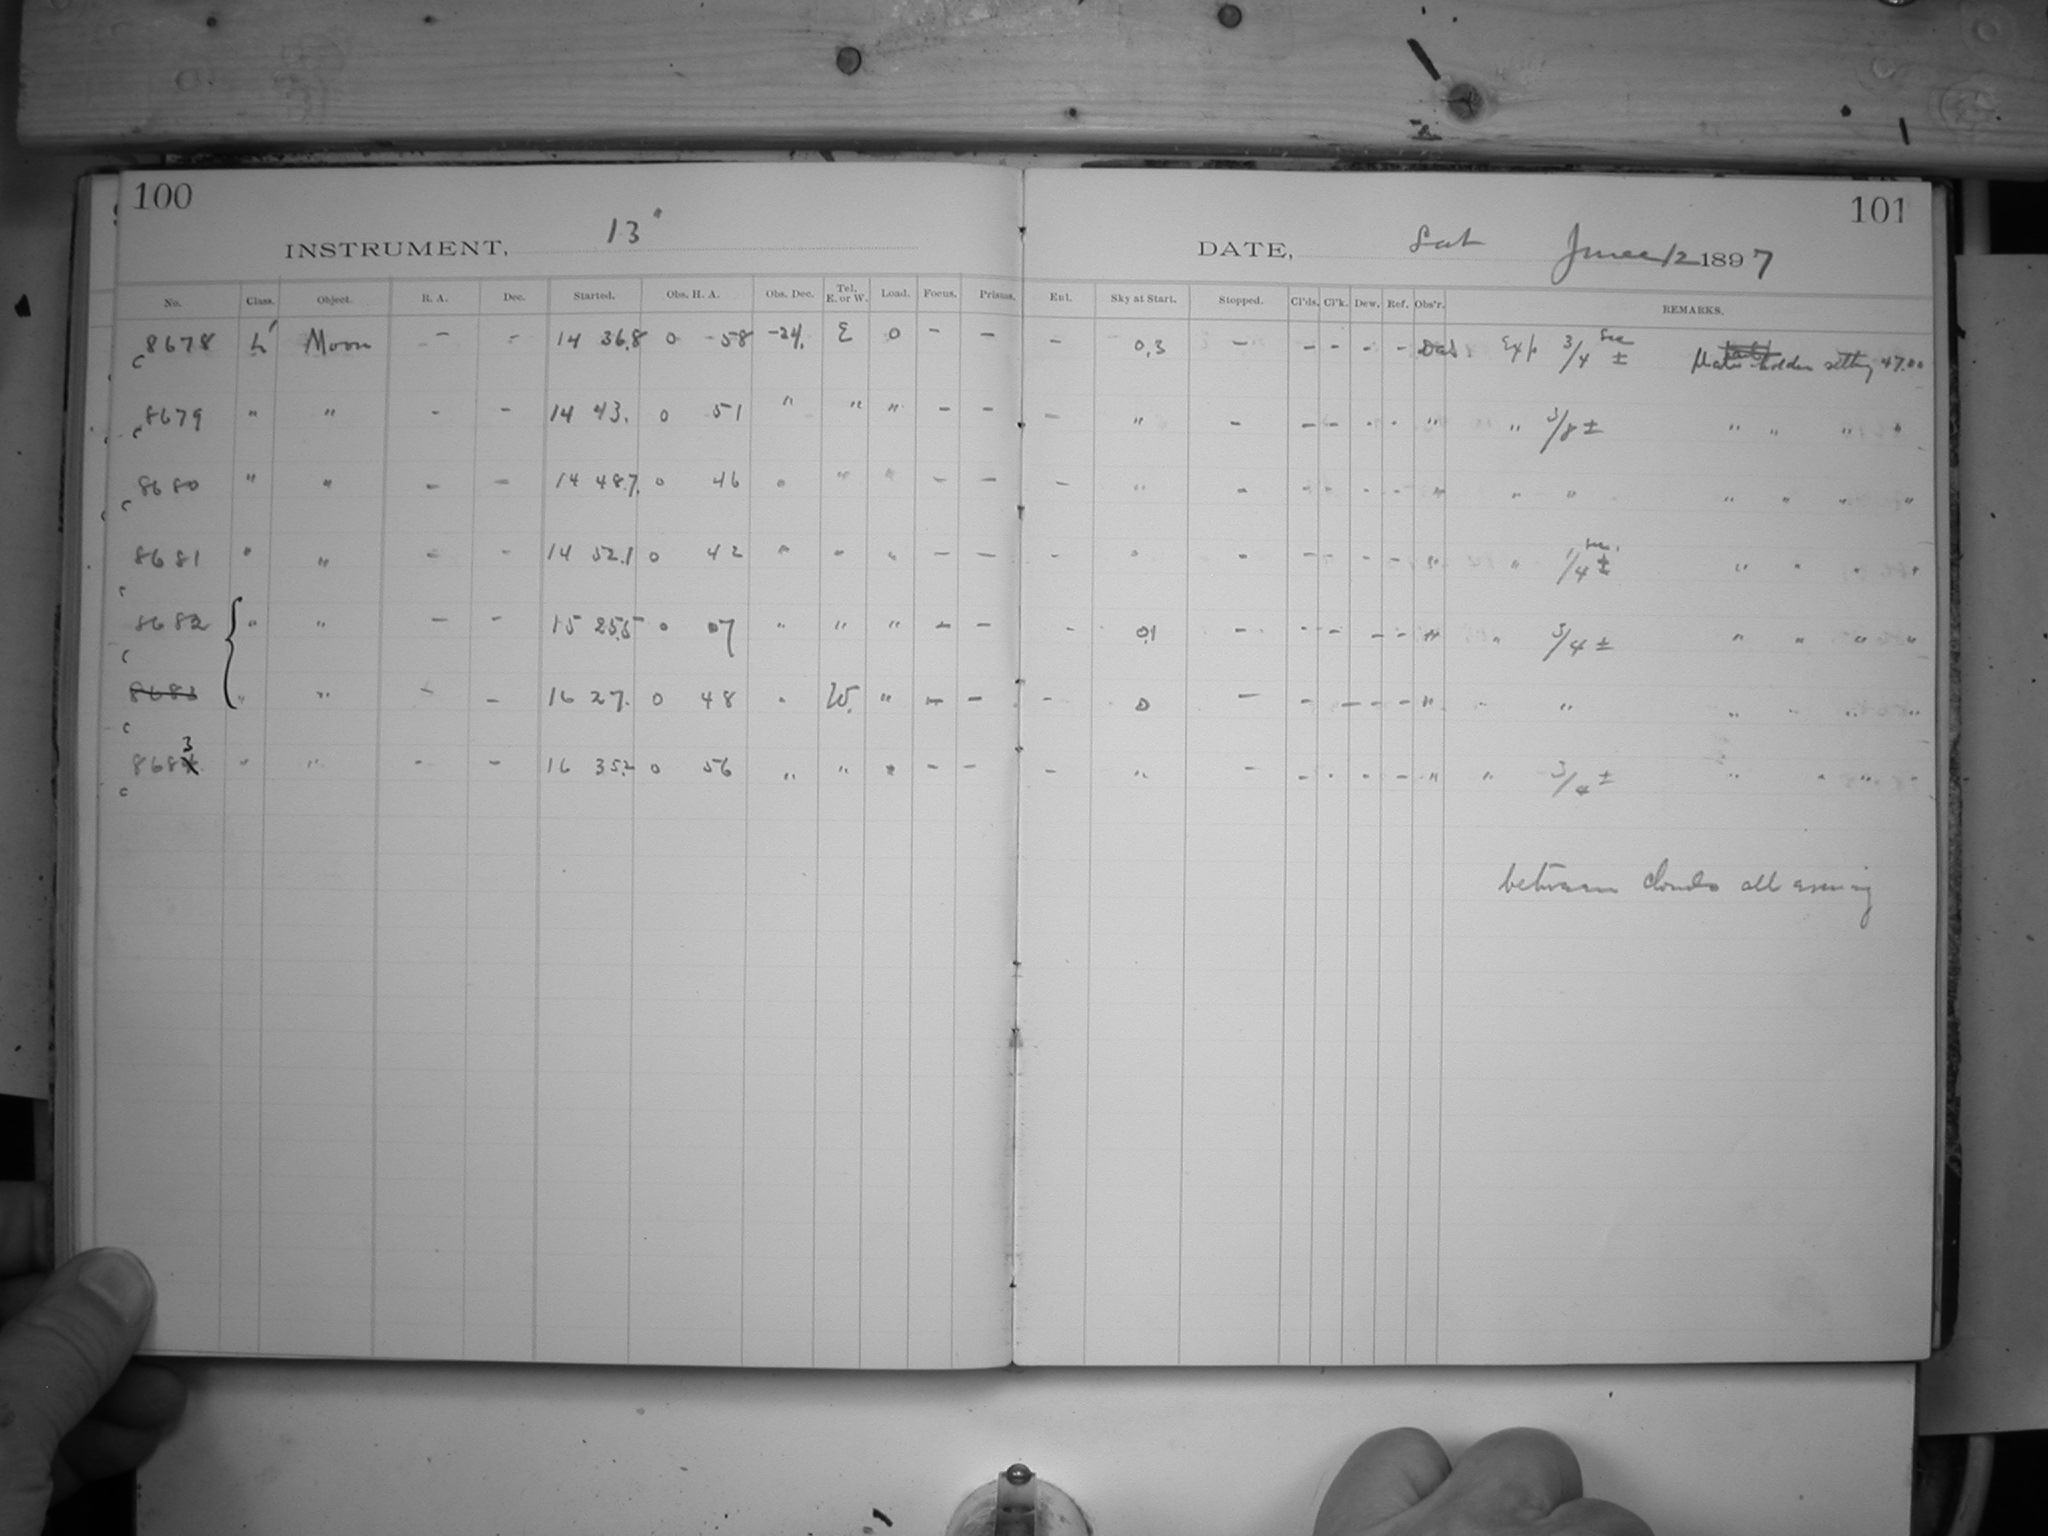 100
INSTRUMENT, 13"
No. Class. Object. R. A. Dec. Started. Obs. H. A. Obs. Dec. Tel. E. or W. Load. Focus. Prisms.
8678 L' Moon - - 14 36.8 0 58 -24. E 0 - -
c
8679 " " - - 14 43. 0 51 " " " - -
c
8680 " " - - 14 48.7 0 46 " " " - -
c
8681 " " - - 14 52.1 0 42 " " " - -
c
8682 " " - - 15 25.5 0 07 " " " - -
c
8683 " " - - 16 27. 0 48 " W. " - -
c
3
8684 " " - - 16 35.2 0 56 " " " - -
c
101
DATE, Sat June 12 1897
Enl. Sky at Start. Stopped. Cl'ds. Cl'k. Dew. Ref. Obs'r. REMARKS.
- 0.3 - - - - - Exp 3/4 sec ± Plate holder setting 47.00
- " - - - - - " " 3/8 ± " " " "
- " - - - - - " " " " " " "
- " - - - - - " " 1/4 sec. ± " " " "
- 0.1 - - - - - " " 3/4 ± " " " "
- 0 - - - - - " " " " " " "
- " - - - - - " " 3/4 ± " " " "
between clouds all evening